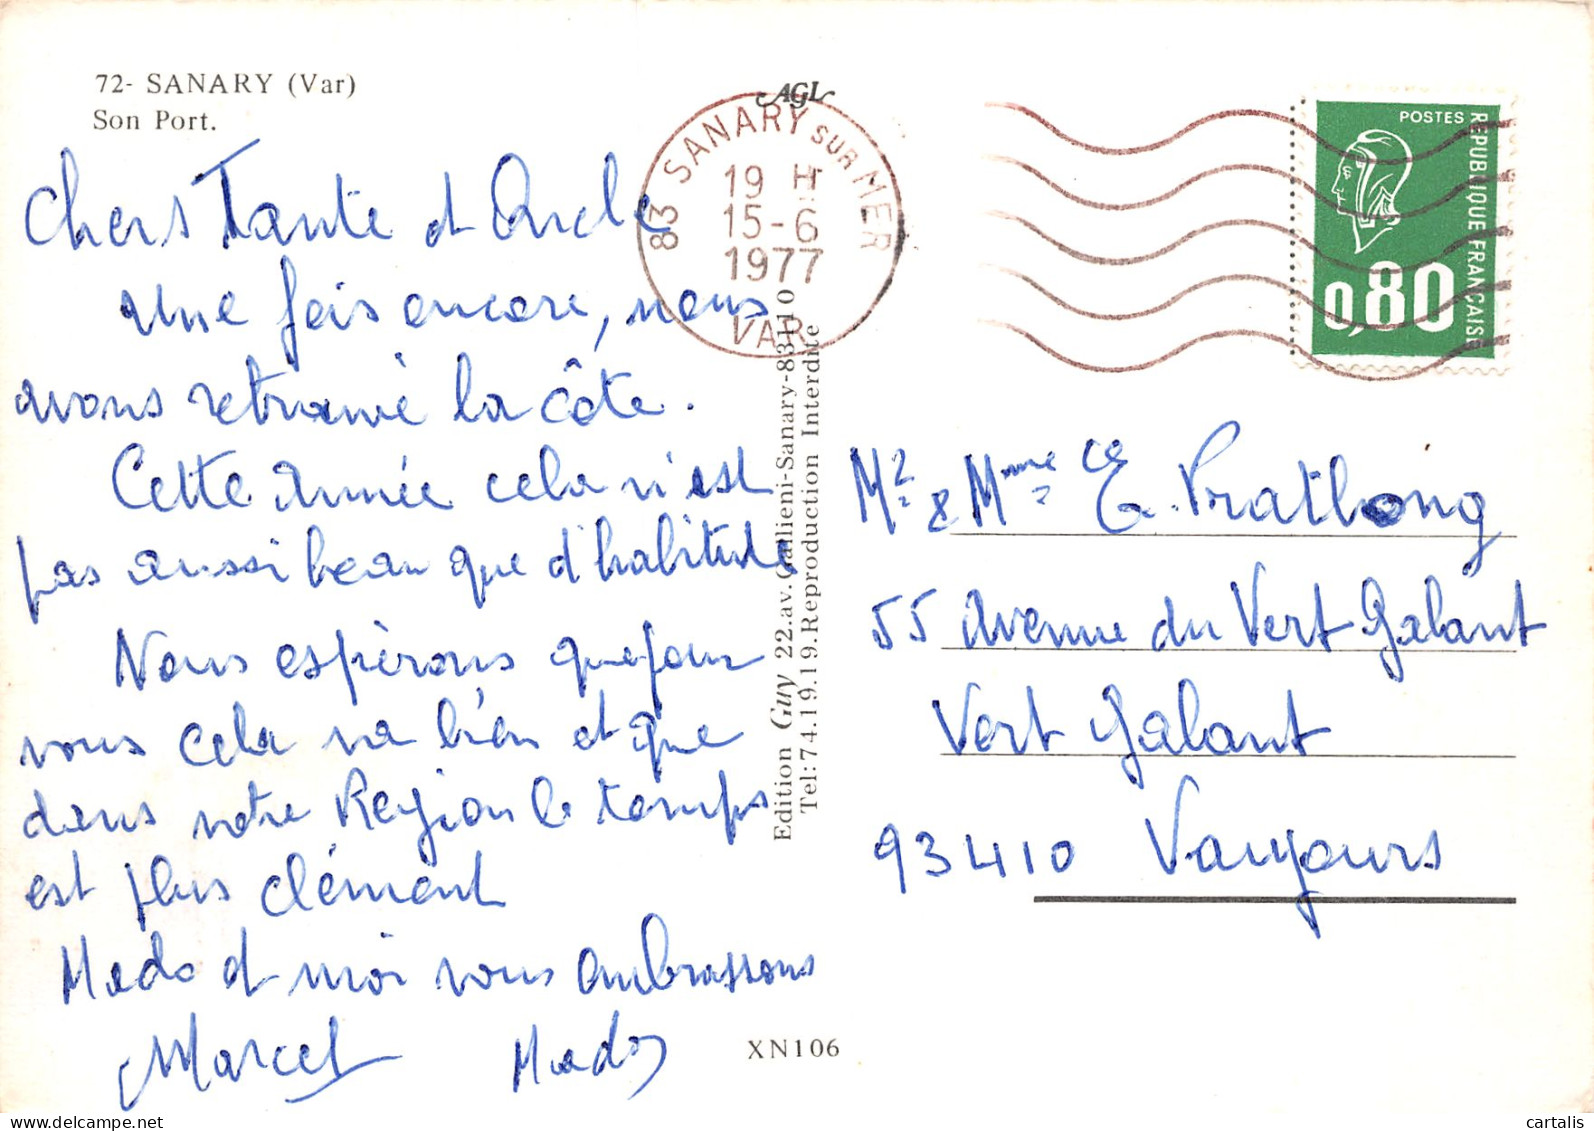 72- SANARY (Var)
Son Port.
Chers Tante et Oncle
Une fois encore, nous
avons retrouvé la côte.
Cette année cela n'est
pas aussi beau que d'habitude
Nous espérons que pour
vous cela va bien et que
dans votre Région le temps
est plus clément
Mado et moi vous embrassons
Marcel Mado
XN106
AGL
83 SANARY SUR MER
19 H
15-6
1977
VAR
Edition Guy 22.av.Gallieni-Sanary-83110
Tel:74.19.19.Reproduction Interdite
POSTES
REPUBLIQUE FRANCAISE
0,80
Mr & Mme E. Prathong
55 Avenue du Vert Galant
Vert Galant
93410 Vaujours
delcampe.net
cartalis